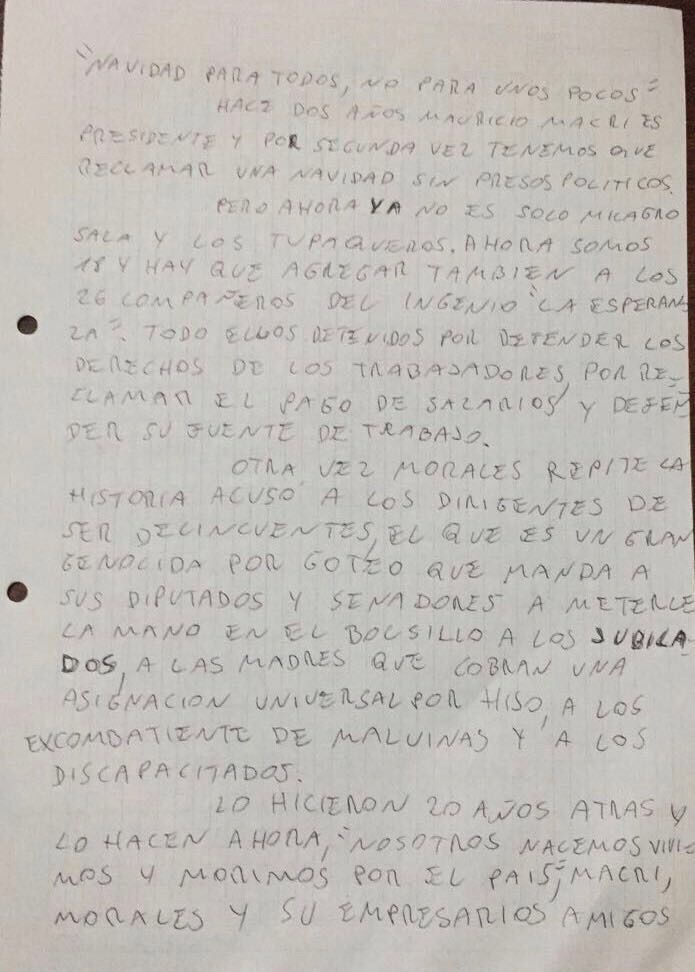 "NAVIDAD PARA TODOS, NO PARA UNOS POCOS"
HACE DOS AÑOS MAURICIO MACRI ES
PRESIDENTE Y POR SEGUNDA VEZ TENEMOS QUE
RECLAMAR UNA NAVIDAD SIN PRESOS POLITICOS.
PERO AHORA YA NO ES SOLO MILAGRO
SALA Y LOS TUPAQUEROS. AHORA SOMOS
18 Y HAY QUE AGREGAR TAMBIEN A LOS
26 COMPAÑEROS DEL INGENIO "LA ESPERAN
ZA". TODO ELLOS DETENIDOS POR DEFENDER LOS
DERECHOS DE LOS TRABAJADORES, POR RE-
CLAMAR EL PAGO DE SALARIOS Y DEFEN
DER SU FUENTE DE TRABAJO.
OTRA VEZ MORALES REPITE LA
HISTORIA ACUSO A LOS DIRIGENTES DE
SER DELINCUENTES, EL QUE ES UN GRAN
GENOCIDA POR GOTEO QUE MANDA A
SUS DIPUTADOS Y SENADORES A METERLE
LA MANO EN EL BOLSILLO A LOS JUBILA
DOS, A LAS MADRES QUE COBRAN UNA
ASIGNACION UNIVERSAL POR HIJO, A LOS
EXCOMBATIENTE DE MALVINAS Y A LOS
DISCAPACITADOS.
LO HICIERON 20 AÑOS ATRAS Y
LO HACEN AHORA, "NOSOTROS NACEMOS VIVI-
MOS Y MORIMOS POR EL PAIS", MACRI,
MORALES Y SU EMPRESARIOS AMIGOS